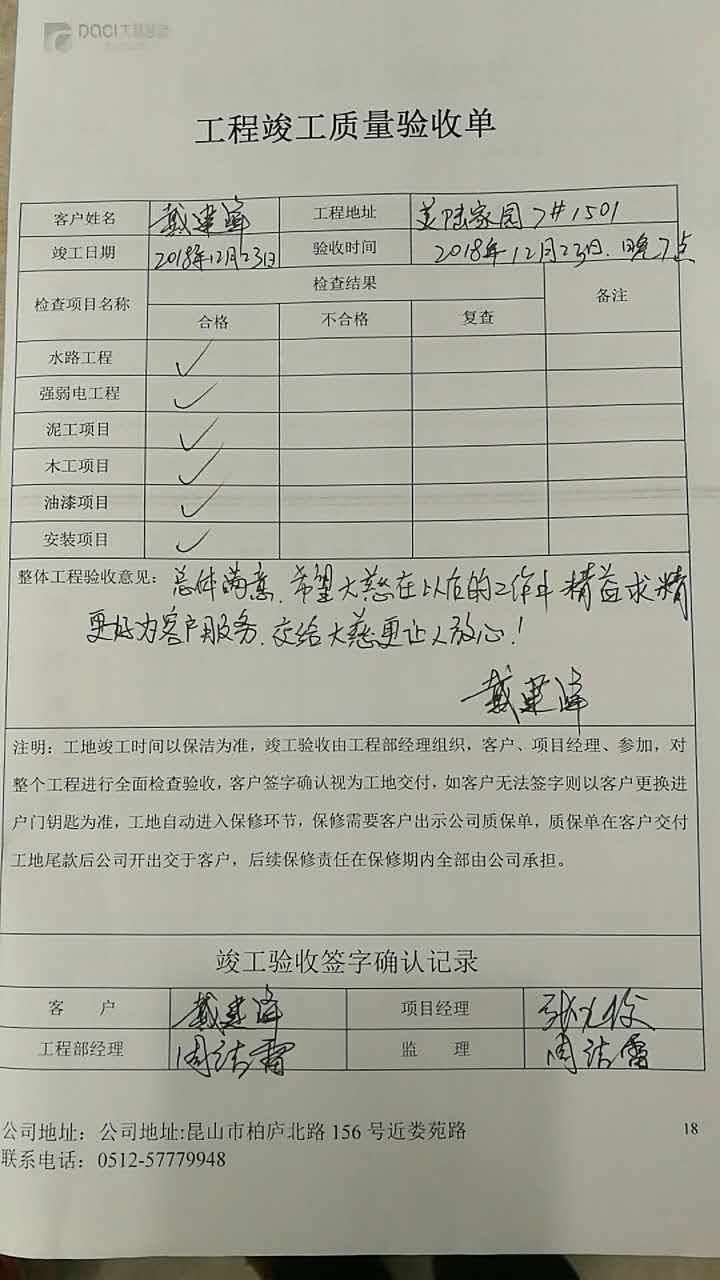 DACI大慈装饰
工程竣工质量验收单
客户姓名 戴建峰 工程地址 美陆家园7#1501
竣工日期 2018年12月23日 验收时间 2018年12月23日.晚7点
检查项目名称 检查结果 备注
合格 不合格 复查
水路工程 ✓
强弱电工程 ✓
泥工项目 ✓
木工项目 ✓
油漆项目 ✓
安装项目 ✓
整体工程验收意见：总体满意.希望大慈在以后的工作中精益求精
更好为客户服务.交给大慈更让人放心！
戴建峰
注明：工地竣工时间以保洁为准，竣工验收由工程部经理组织，客户、项目经理、参加，对
整个工程进行全面检查验收，客户签字确认视为工地交付，如客户无法签字则以客户更换进
户门钥匙为准，工地自动进入保修环节，保修需要客户出示公司质保单，质保单在客户交付
工地尾款后公司开出交于客户，后续保修责任在保修期内全部由公司承担。
竣工验收签字确认记录
客 户 戴建峰 项目经理
工程部经理 周洁雷 监 理 周洁雷
公司地址：公司地址:昆山市柏庐北路 156 号近娄苑路
18
联系电话：0512-57779948